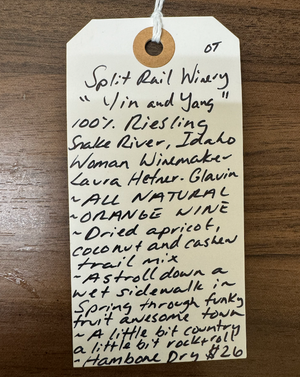 OT
Split Rail Winery
"Yin and Yang"
100% Riesling
Snake River, Idaho
Woman Winemaker
Laura Hefner-Glavin
~ALL NATURAL
~ORANGE WINE
~Dried apricot,
coconut and cashew
trail mix
~A stroll down a
wet sidewalk in
Spring through funky
fruit awesome town
~A little bit country
a little bit rock+roll
~Hambone Dry $26